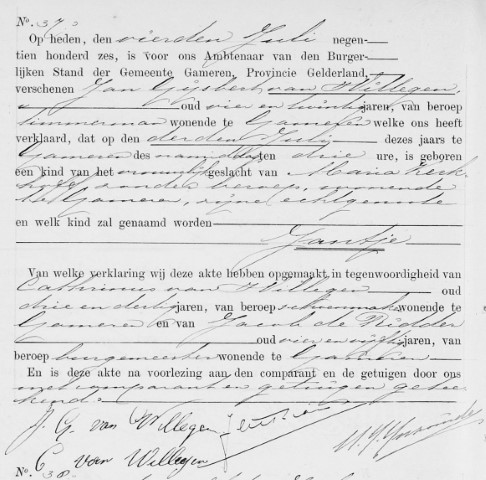 No. 37.
Op heden, den vierden Juli negen-
tien honderd zes, is voor ons Ambtenaar van den Burger-
lijken Stand der Gemeente Gameren, Provincie Gelderland,
verschenen Jan Gijsbert van Willegen
oud vier en twintig jaren, van beroep
timmerman wonende te Gameren welke ons heeft
verklaard, dat op den derden Juli dezes jaars te
Gameren des namiddags ten drie ure, is geboren
een kind van het vrouwelijk geslacht van Maria Kerk-
hof, zonder beroep, wonende
te Gameren, zijne echtgenoote
en welk kind zal genaamd worden
Jantje
Van welke verklaring wij deze akte hebben opgemaakt, in tegenwoordigheid van
Cathrinus van Willegen oud
drie en dertig jaren, van beroep schoenmaker wonende te
Gameren en van Jacob de Ridder
oud vier en jaren, van
beroep burgemeester wonende te Gameren
En is deze akte na voorlezing aan den comparant en de getuigen door ons
met comparant en getuigen getee-
kend.
J. G. van Willegen
C. van Willegen
No. 38.